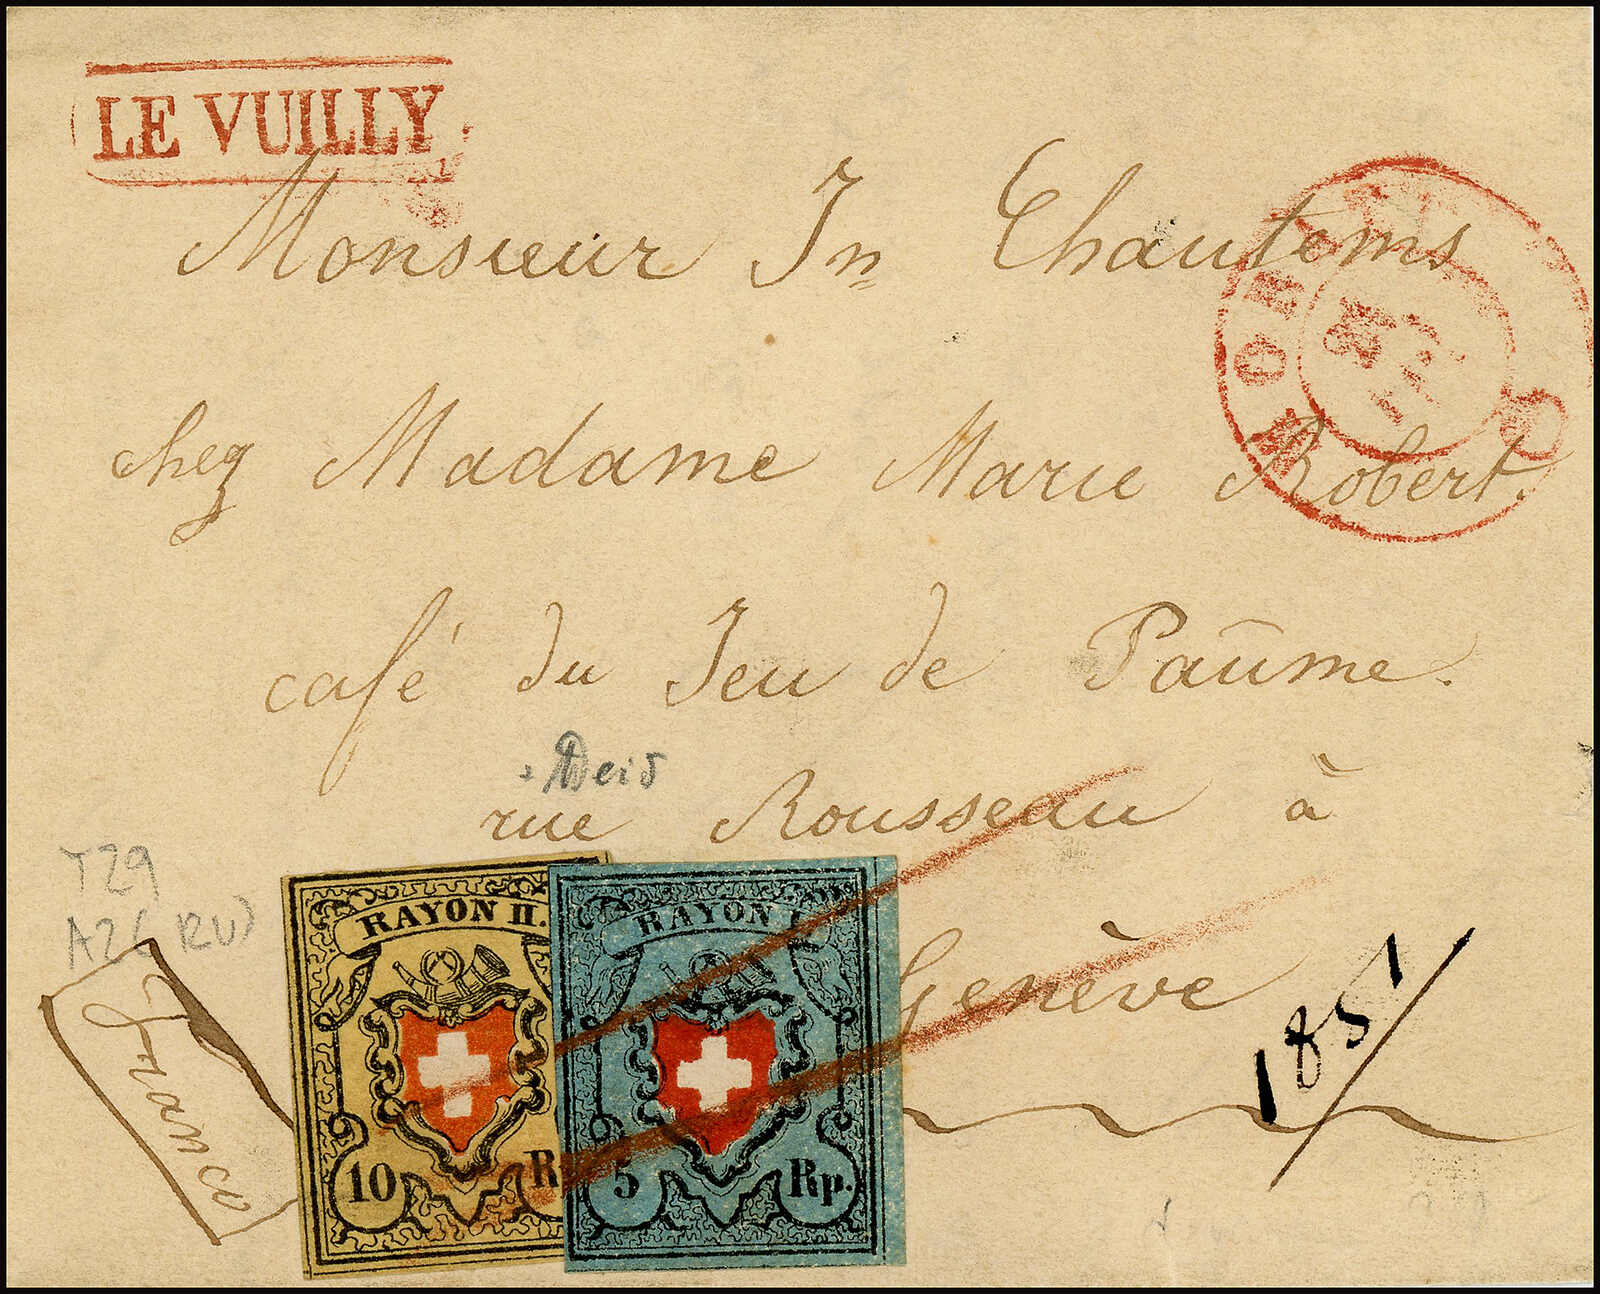 LE VUILLY
Monsieur Jn Chautems
chez Madame Marie Robert.
café du Jeu de Paûme.
rue Rousseau à
Genève
MOR
T29
Franco
RAYON II.
10 Rp
RAYON I.
5 Rp.
1851